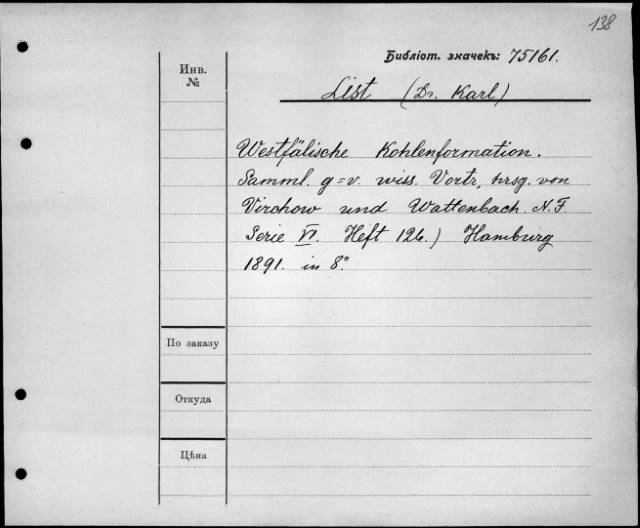 138
Библіот. значекъ: 75161.
Инв.
№
List (Dr. Karl)
Westfälische Kohlenformation.
Samml. g=v. wiss. Vortr, hrsg. von
Virchow und Wattenbach. N.F
Serie VI. Heft 126.) Hamburg
1891. in 8°.
По заказу
Откуда
Цѣна